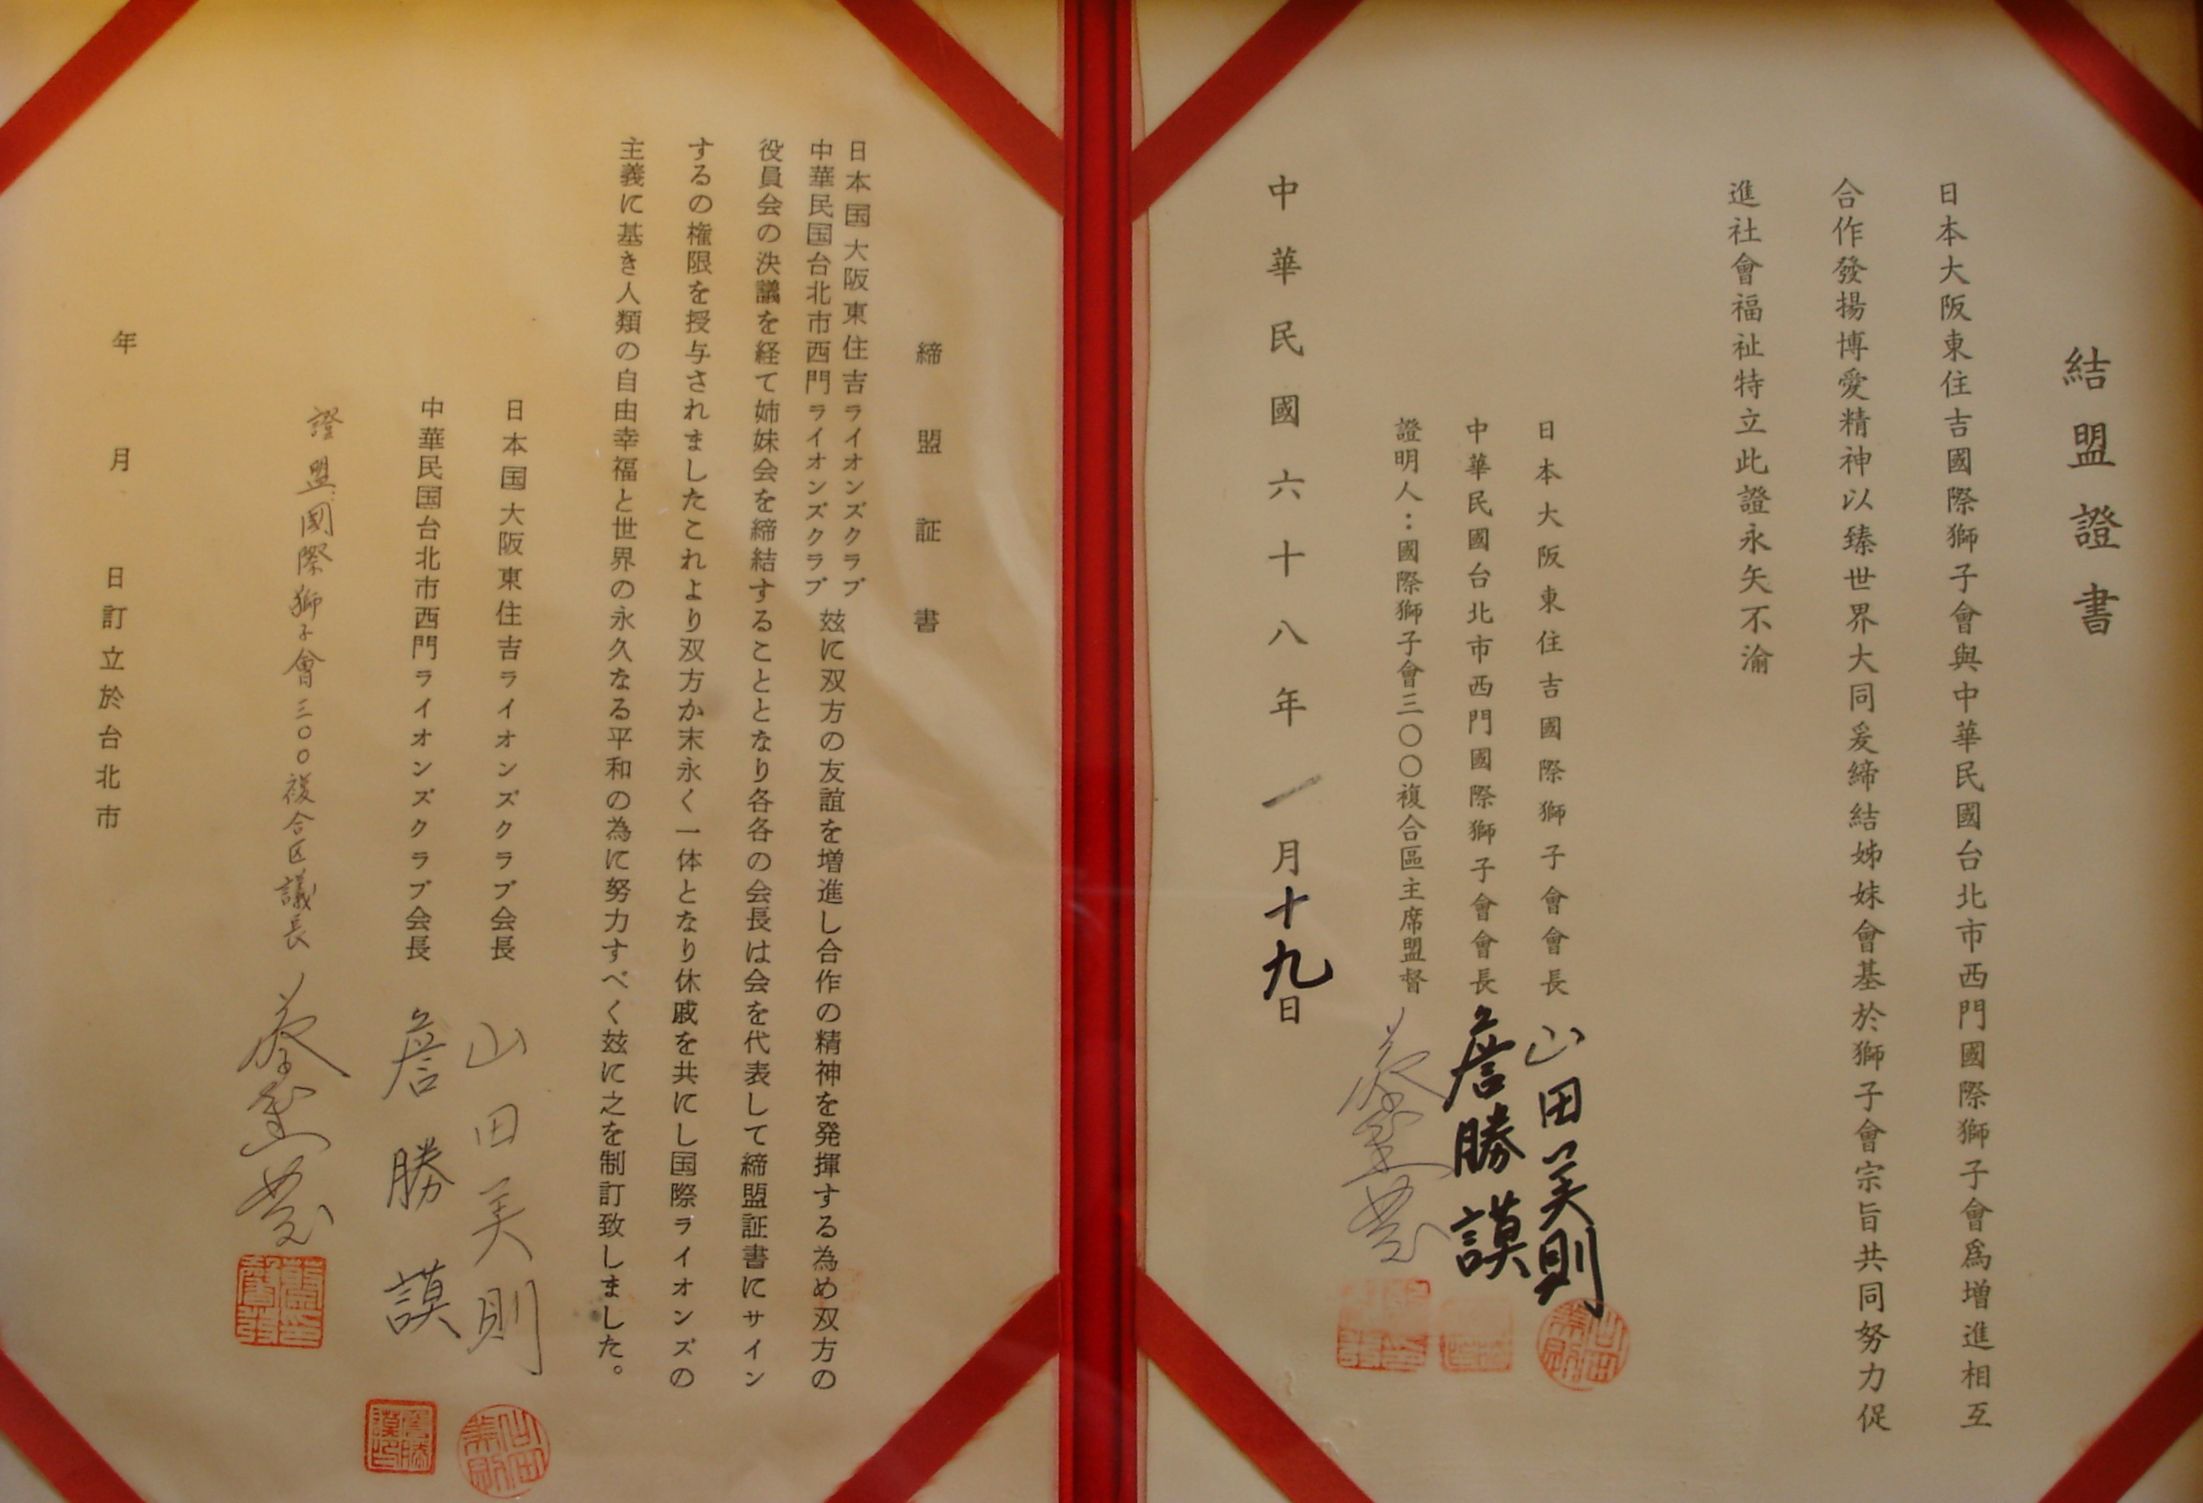 結盟證書
日本大阪東住吉國際獅子會與中華民國台北市西門國際獅子會爲增進相互
合作發揚博愛精神以臻世界大同爰締結姊妹會基於獅子會宗旨共同努力促
進社會福祉特立此證永矢不渝
日本大阪東住吉國際獅子會會長 山田美則
中華民國台北市西門國際獅子會會長 詹勝謨
證明人：國際獅子會三〇〇複合區主席盟督
中華民國六十八年一月十九日
締盟証書
日本国大阪東住吉ライオンズクラブ
中華民国台北市西門ライオンズクラブ
玆に双方の友誼を増進し合作の精神を発揮する為め双方の
役員会の決議を経て姉妹会を締結することとなり各各の会長は会を代表して締盟証書にサイン
するの権限を授与されましたこれより双方か末永く一体となり休戚を共にし国際ライオンズの
主義に基き人類の自由幸福と世界の永久なる平和の為に努力すべく玆に之を制訂致しました。
日本国大阪東住吉ライオンズクラブ会長 山田美則
中華民国台北市西門ライオンズクラブ会長 詹勝謨
證盟國際獅子會三〇〇複合区議長
年 月 日訂立於台北市